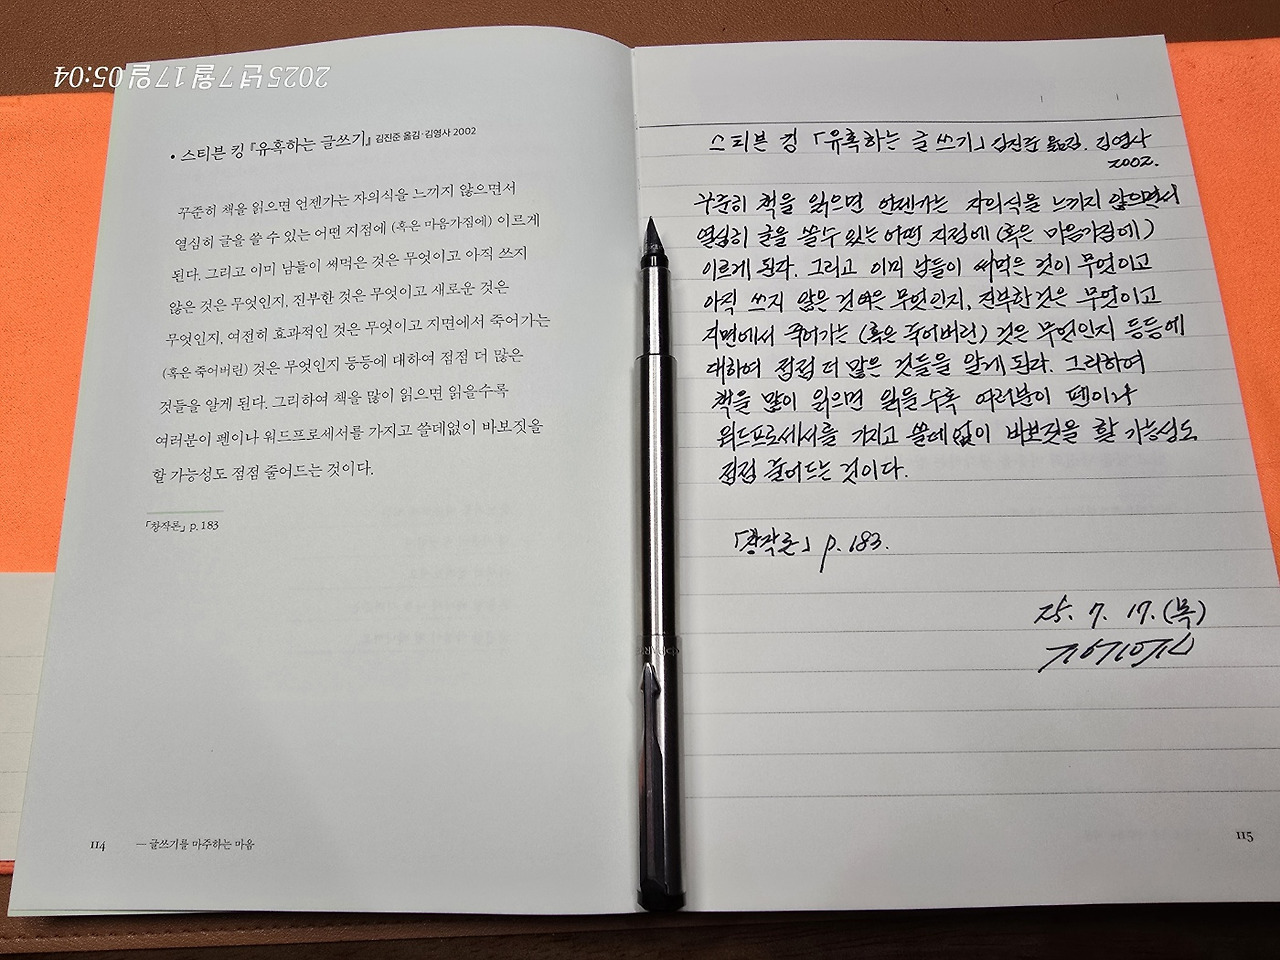 2025년 7월 17일 05:04
• 스티븐 킹 『유혹하는 글쓰기』 김진준 옮김·김영사 2002
꾸준히 책을 읽으면 언젠가는 자의식을 느끼지 않으면서
열심히 글을 쓸 수 있는 어떤 지점에 (혹은 마음가짐에) 이르게
된다. 그리고 이미 남들이 써먹은 것은 무엇이고 아직 쓰지
않은 것은 무엇인지, 진부한 것은 무엇이고 새로운 것은
무엇인지, 여전히 효과적인 것은 무엇이고 지면에서 죽어가는
(혹은 죽어버린) 것은 무엇인지 등등에 대하여 점점 더 많은
것들을 알게 된다. 그리하여 책을 많이 읽으면 읽을수록
여러분이 펜이나 워드프로세서를 가지고 쓸데없이 바보짓을
할 가능성도 점점 줄어드는 것이다.
「창작론」 p. 183
114 — 글쓰기를 마주하는 마음
스티븐 킹 「유혹하는 글쓰기」 김진준 옮김. 김영사
2002.
꾸준히 책을 읽으면 언젠가는 자의식을 느끼지 않으면서
열심히 글을 쓸 수 있는 어떤 지점에 (혹은 마음가짐에)
이르게 된다. 그리고 이미 남들이 써먹은 것이 무엇이고
아직 쓰지 않은 것은 무엇인지, 진부한 것은 무엇이고
지면에서 죽어가는 (혹은 죽어버린) 것은 무엇인지 등등에
대하여 점점 더 많은 것들을 알게 된다. 그리하여
책을 많이 읽으면 읽을수록 여러분이 펜이나
워드프로세서를 가지고 쓸데없이 바보짓을 할 가능성도
점점 줄어드는 것이다.
「창작론」 p. 183.
25. 7. 17. (목)
115